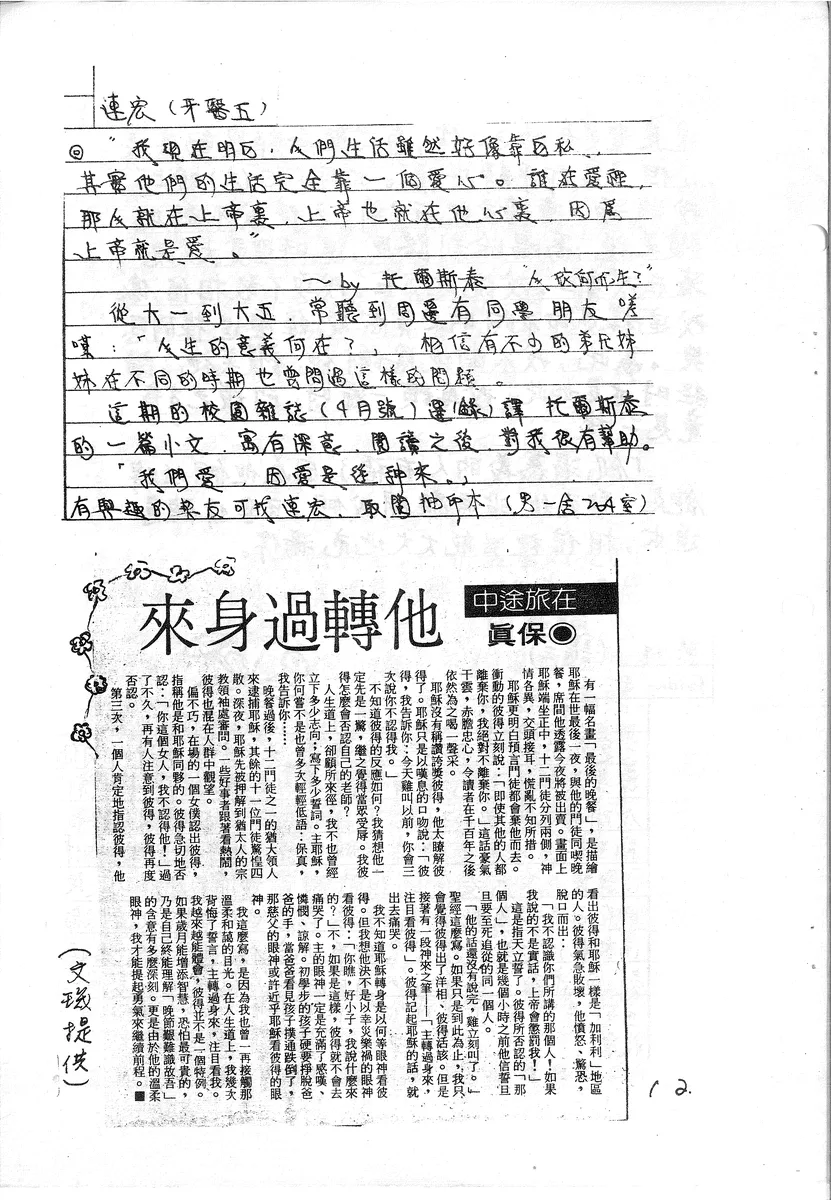 連宏（牙醫五）
◎"我現在明白，人們生活雖然好像靠自私，
其實他們的生活完全靠一個愛心。誰在愛裡，
那人就在上帝裏，上帝也就在他心裏，因為
上帝就是愛。"
～by 托爾斯泰 "人為何而生？"
從大一到大五，常聽到周邊有同學朋友嗟
嘆：「人生的意義何在？」，相信有不少的弟兄姊
妹在不同的時期也曾問過這樣的問題。
這期的校園雜誌（4月號）選（錄）譯 托爾斯泰
的一篇小文，寓有深意，閱讀之後，對我很有幫助。
「我們愛，因愛是從神來。」
有興趣的契友可找連宏，取閱抽印本（男一舍204室）
中途旅在
來身過轉他
眞保◉
有一幅名畫「最後的晚餐」，是描繪
耶穌在世最後一夜，與他的門徒同喫晚
餐，席間他透露今夜將被出賣。畫面上
耶穌端坐正中，十二門徒分列兩側，神
情各異，交頭接耳，慌亂不知所措。
耶穌更明白預言門徒都會棄他而去。
衝動的彼得立刻說：「即使其他的人都
離棄你，我絕對不離棄你。」這話豪氣
干雲，赤膽忠心，令讀者在千百年之後
依然為之喝一聲采。
耶穌沒有稱讚誇獎彼得，他太瞭解彼
得了。耶穌只是以嘆息的口吻說：「彼
得，我告訴你：今天雞叫以前，你會三
次說你不認得我。」
不知道彼得的反應如何？我猜想他一
定先是一驚，繼之覺得當眾受辱。我彼
得怎麼會否認自己的老師？
人生道上，卻顧所來徑，我不也曾經
立下多少志向；寫下多少誓詞。主耶穌，
你何嘗不是也曾多次輕輕低語：保真，
我告訴你……
晚餐過後，十二門徒之一的猶大領人
來逮捕耶穌，其餘的十一位門徒驚惶四
散。深夜，耶穌先被押解到猶太人的宗
教領袖處審問。一些好事者跟著看熱鬧，
彼得也混在人群中觀望。
偏不巧，在場的一個女僕認出彼得，
指稱他是和耶穌同夥的。彼得急切地否
認：「你這個女人，我不認得他！」過
了不久，再有人注意到彼得，彼得再度
否認。
第三次，一個人肯定地指認彼得，他
看出彼得和耶穌一樣是「加利利」地區
的人。彼得氣急敗壞，他憤怒、驚恐，
脫口而出：
「我不認識你們所講的那個人！如果
我說的不是實話，上帝會懲罰我！」
這是指天立誓了。彼得所否認的「那
個人」，也就是幾個小時之前他信誓旦
旦要至死追從的同一個人。
「他的話還沒有說完，雞立刻叫了。」
聖經這麼寫。如果只是到此為止，我只
會覺得彼得出了洋相，彼得活該。但是
接著有一段神來之筆——「主轉過身來，
注目看彼得」。彼得記起耶穌的話，就
出去痛哭。
我不知道耶穌轉身是以何等眼神看彼
得。但我想他決不是以幸災樂禍的眼神
看彼得：「你瞧，好小子，我說什麼來
的？」不，如果是這樣，彼得就不會去
痛哭了。主的眼神一定是充滿了感嘆、
憐憫、諒解。初學步的孩子硬要掙脫爸
爸的手，當爸爸看見孩子撲通跌倒了，
那慈父的眼神或許近乎耶穌看彼得的眼
神。
我這麼寫，是因為我也曾一再接觸那
溫柔和藹的目光。在人生道上，我幾次
背悔了誓言，主轉過身來，注目看我。
我越來越能體會，彼得並不是一個特例。
如果歲月能增添智慧，恐怕最可貴的，
乃是自己終能理解「晚節艱難識故吾」
的含意有多麼深刻。更是由於他的溫柔
眼神，我才能提起勇氣來繼續前程。■
（文璣提供）
12.